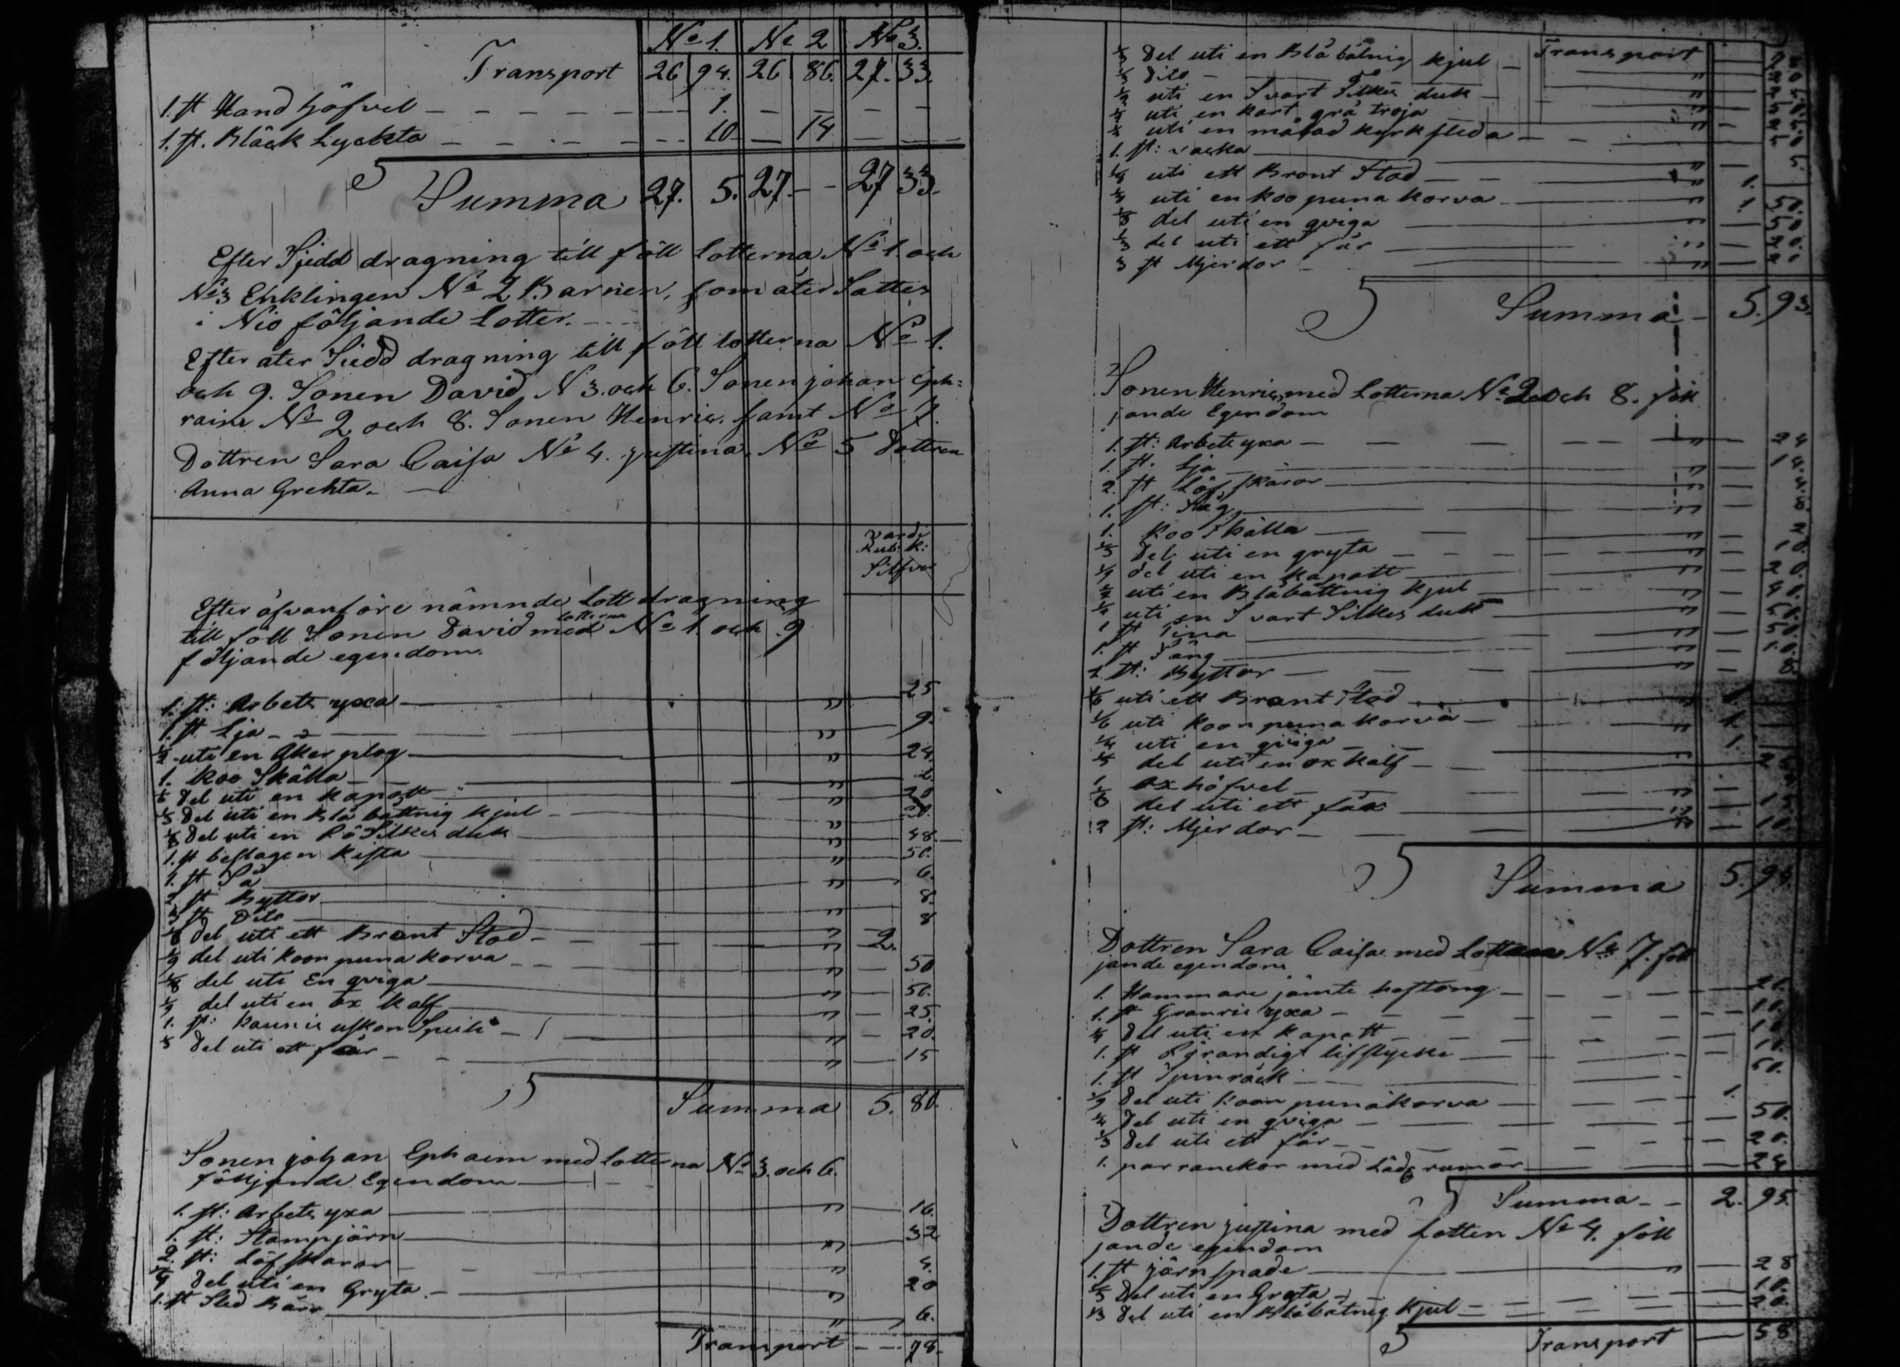 No 1. No 2 No 3.
Transport 26 94. 26 86. 27. 33.
1. st Hand höfvel - - - 1. - - - -
1. st. Bläck Lyckta - - - 10 - 14 - -
Summa 27. 5. 27 - - 27 33.
Efter Skedd dragning till föll lotterna No 1. och
No 3 Enklingen No 2 Barnen, som åter Sattes
i Nio följande Lotter.
Efter åter Skedd dragning till föll lotterna No 1.
och 9. Sonen David N 3. och 6. Sonen johan Eph=
raim No 2 och 8. Sonen Henric. samt No 7.
Dottren Sara Caisa No 4. justina. No 5 Dottren
Anna Grehta.
Silfver
Efter åfvanföre nämnde Lott dragning
till föll Sonen David med lotterna No 1 och 9
följande egendom.
1. st: Arbets yxa " 25
1. st Lja " 9.
1/2 uti en Åker plog " 24.
1. Koo Skälla "
del uti en Kapott " 20
del uti en Blå båttnig kjul "
del uti en Silkes duk " 48.
1. st beslagen Kista " 50.
1. st Så " 6.
2 st Byttor " 8.
st Dito " 8
del uti ett Brant Stod - " 2.
del uti koon puna korva " 50
del uti En qviga " 50.
del uti en ox kalf " 25.
1. st: " 20.
del uti ett får " 15
Summa 5. 80.
Sonen johan Ephaim med lotterna No 3. och 6.
följande Egendom
1. st: Arbets yxa " 16.
1. st: Stampjärn " 32
2. st: Löf skaror " 4.
del uti en Gryta. " 20
1. st Sled " 6.
Transport - - 78.
del uti en Blå båtnig kjul - Transport
Dito "
uti en Svart Silkes duk "
uti en kort grå troja "
uti en målad kyrk släda "
1. st: 5.
uti ett Brant Stod " 1.
uti en koo puna korva " 1. 50.
del uti en qviga " 50
del uti ett får " 20.
3 st Mjerdor "
Summa 5. 93.
Sonen Henric, med Lotterna No 2 och 8. föll
jande Egendom
1. st: Arbets yxa " 24
1. st. Lja "
2. st Löf skaror "
1. st: Såg "
1. Koo Skälla " 2
del uti en gryta " 10.
del uti en kapott " 20.
uti en Blåbåttnig kjul " 40.
uti en Svart Silkes duk " 50.
1 st Tina " 50.
1. st Tång " 10.
2 st: Byttor " 8.
uti ett Brant Stod " 1.
uti koon puna korva 1.
uti en qviga 1.
del uti en ox kalf
ox höfvel
del uti ett får " 15
2 st: Mjerdor " 10.
Summa 5. 94.
Dottren Sara Caisa med Lotten No 7. föll
jande egendom
1. Hammare jämte hoftång
1. st yxa 10.
del uti en kapott 10.
1. st Lifstycke 10.
1. st Spinråck 50.
del uti koon puna korva 1.
del uti en qviga 50.
del uti ett får 20.
1. par med 24
Summa - - 2. 95.
Dottren justina med Lotten No 4. föll
jande egendom
1. st järn spade " 28
del uti en Gryta 10.
1/3 del uti en Blåbåtnig kjul 20.
Transport 58